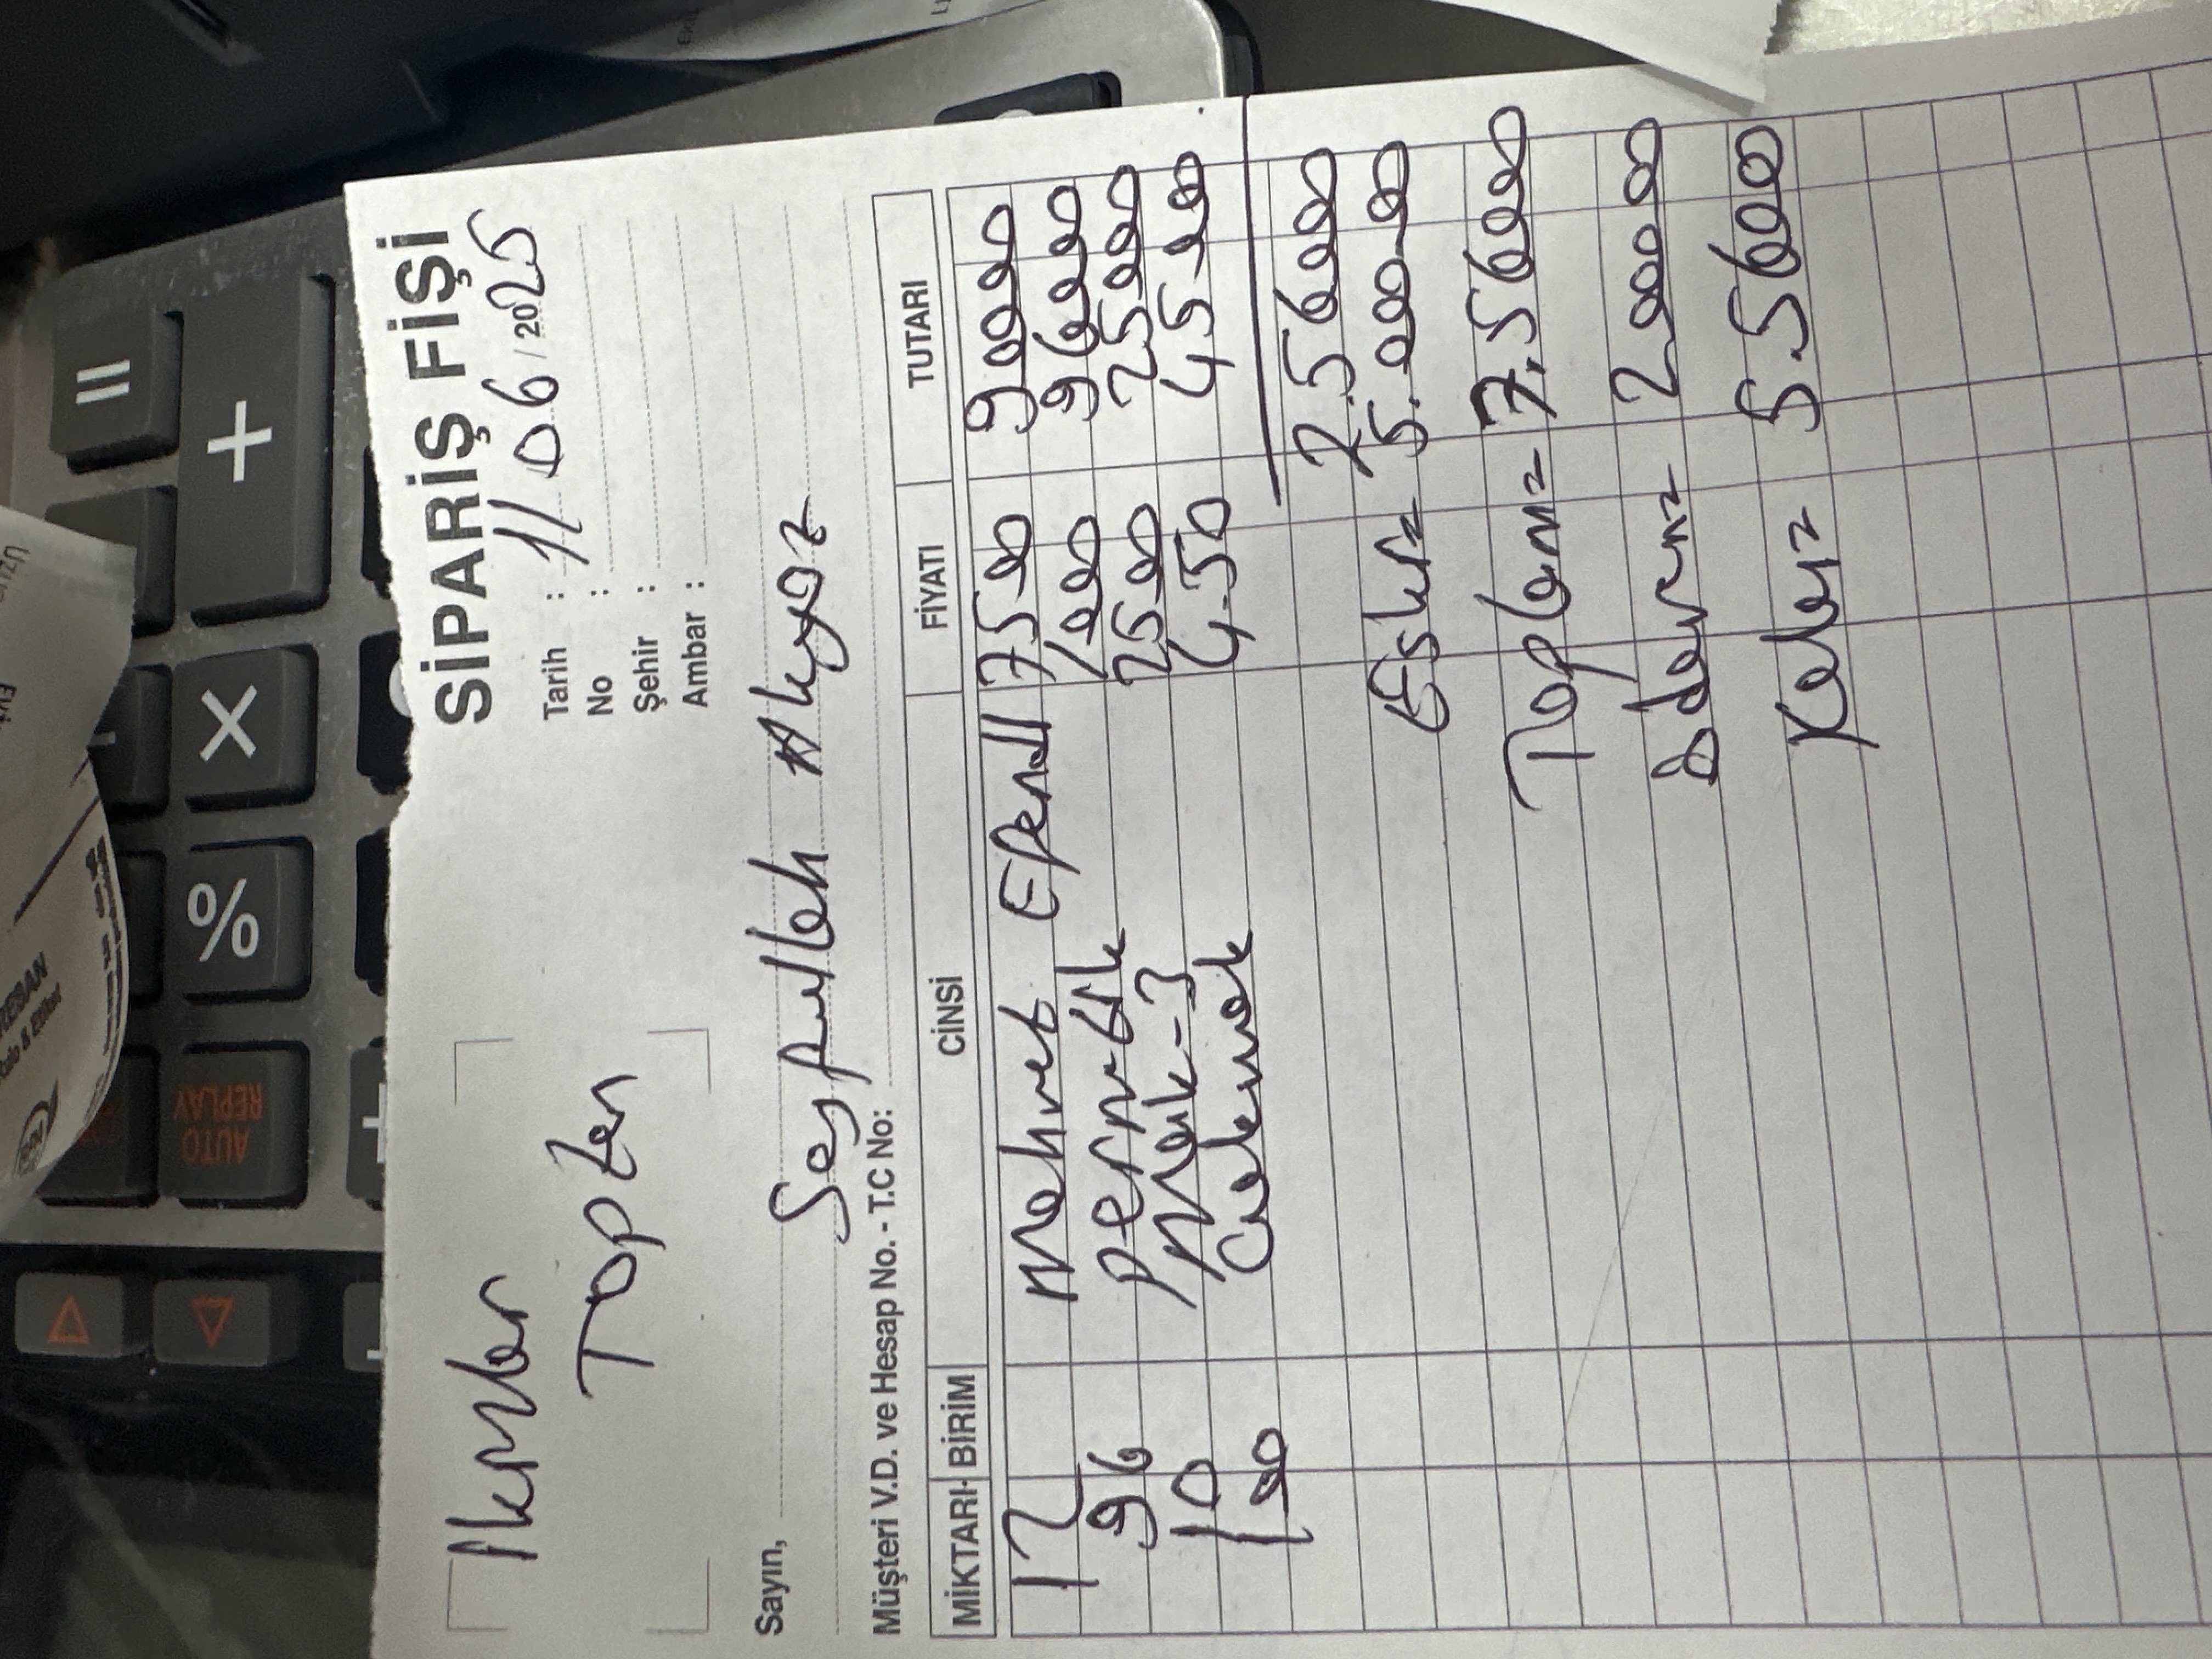 SİPARİŞ FİŞİ
İlknur
Toptan
Tarih : 11/06/2025
No :
Şehir :
Ambar :
Sayın, Seyfullah Akyoz
Müşteri V.D. ve Hesap No. - T.C No:
MİKTARI- BİRİM CİNSİ FİYATI TUTARI
12 Mehmet Efendi 75 00 90000
96 permatik 1000 96000
10 Mak-3 2500 25000
100 Cakmak 4.50 45 00
2.5600
Eski= 5.0000
Toplam= 7.5600
Ödeme= 20000
Kalan= 5.5600
=
+
X
%
AUTO REPLAY